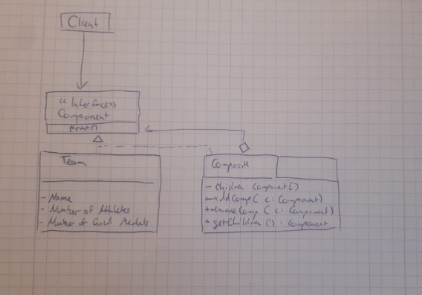 Client
<< Interface>>
Component
Team
- Name
- Number of Athletes
- Number of Gold Medals
Composit
- Children Component[]
+ addComp( c: Component)
+ removeComp ( c: Component)
+ getChildren () : Component